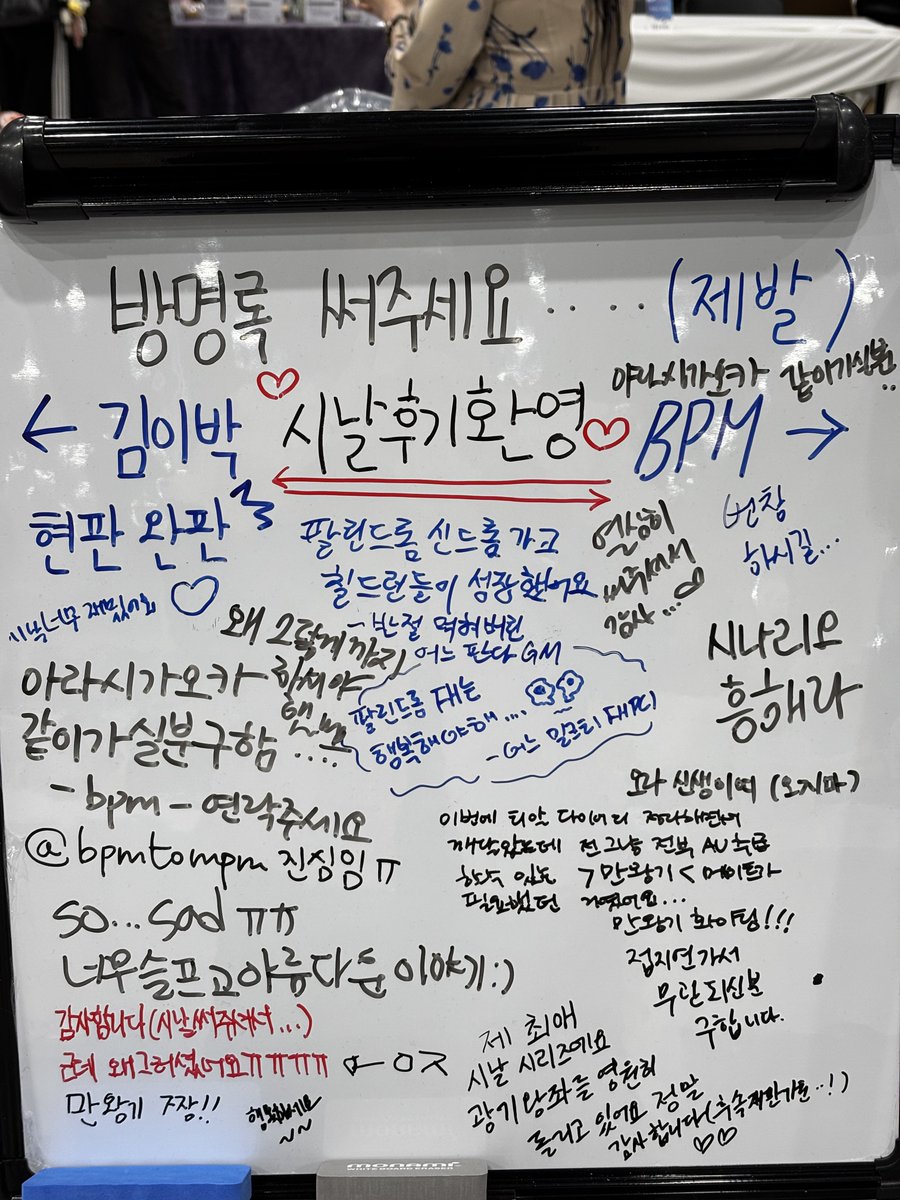 방명록 써주세요 ····· (제발)
아라시가오카 같이가실분
← 김이박 시날후기환영 BPM →
현판 완판
팔린드롬 신드롬 가코
칠드런들이 성장했어요
- 반절 먹혀버린
어느 판다 GM
열심히
써주셔서
감사...
번창
하시길...
시날너무 재밌어요
왜 그렇게까지
하셔야
했나요
아라시가오카
같이가실분구함 ....
- bpm - 연락주세요
@bpmtompm 진심임ㅠ
팔린드롬 대는
행복해야해....
- 어느 밀크티 대PC
시나리오
흥해라
so... sad ㅠㅠ
너무슬프고아름다운이야기:)
감사합니다(시날써주셔서...)
근데 왜그러셨어요ㅠㅠㅠㅠ
만왕기 주장!!
행복하세요
~~
오라 신생이여 (오지마)
이번에 티알 다이어리 정리하면서
깨달았는데 전 그냥 전부 AU 수록
할수 있는 >만왕기< 메이트가
필요했던 거였어요...
만왕기 화이팅!!!
접지연가서
무관되신분
구합니다.
제 최애
시날 시리즈에요
광기왕좌를 영원히
돌리고 있어요 정말
감사합니다(후속작만기원··!)
monami
WHITEBOARD ERASER